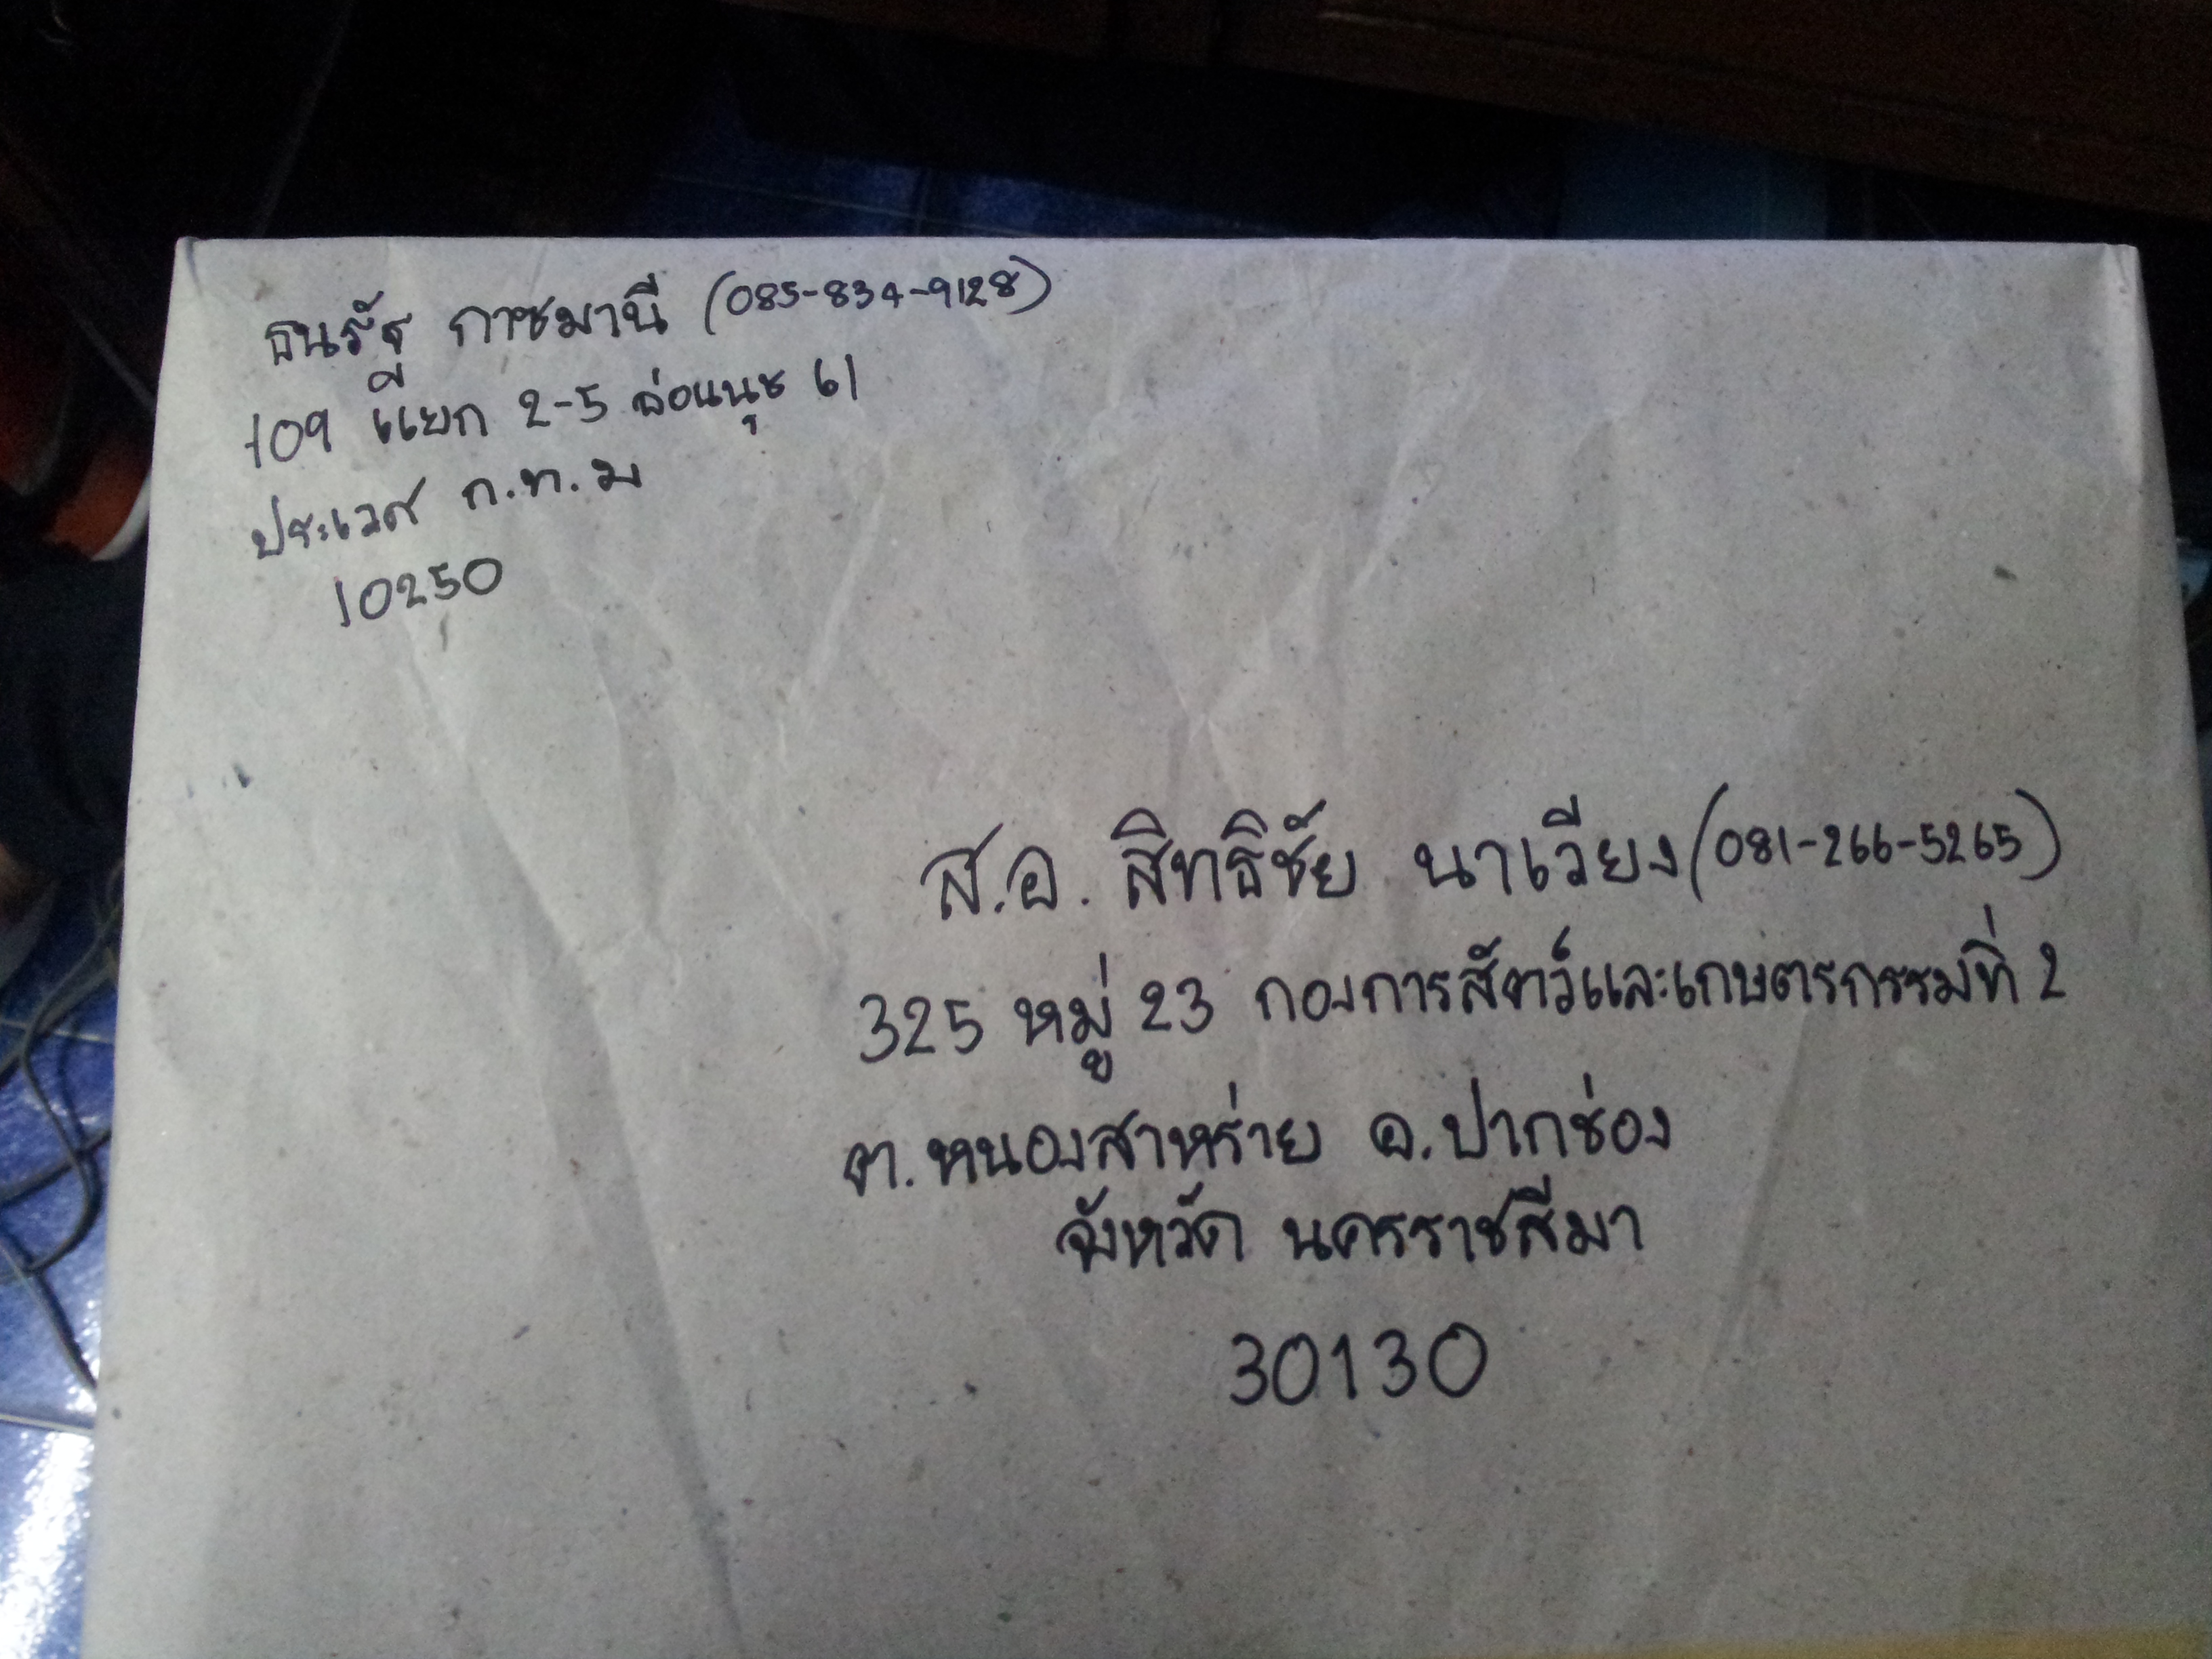 ธนรัฐ กาซมานี (085-834-9128)
109 แยก 2-5 อ่อนนุช 61
ประเวศ ก.ท.ม
10250
ส.อ. สิทธิชัย นาเวียง (081-266-5265)
325 หมู่ 23 กองการสัตว์และเกษตรกรรมที่ 2
ต.หนองสาหร่าย อ.ปากช่อง
จังหวัด นครราชสีมา
30130